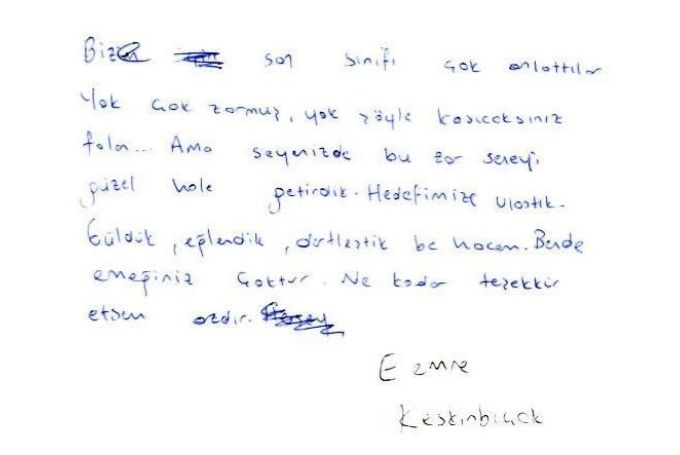 Bize son sınıfı çok anlattılar
Yok çok zormuş, yok şöyle kasıcaksınız
falan... Ama sayenizde bu zor seneyi
güzel hale getirdik. Hedefimize ulaştık.
Güldük, eğlendik, dertleştik be hocam. Bende
emeğiniz çoktur. Ne kadar teşekkür
etsem azdır.
E emre
Keskinbıçak